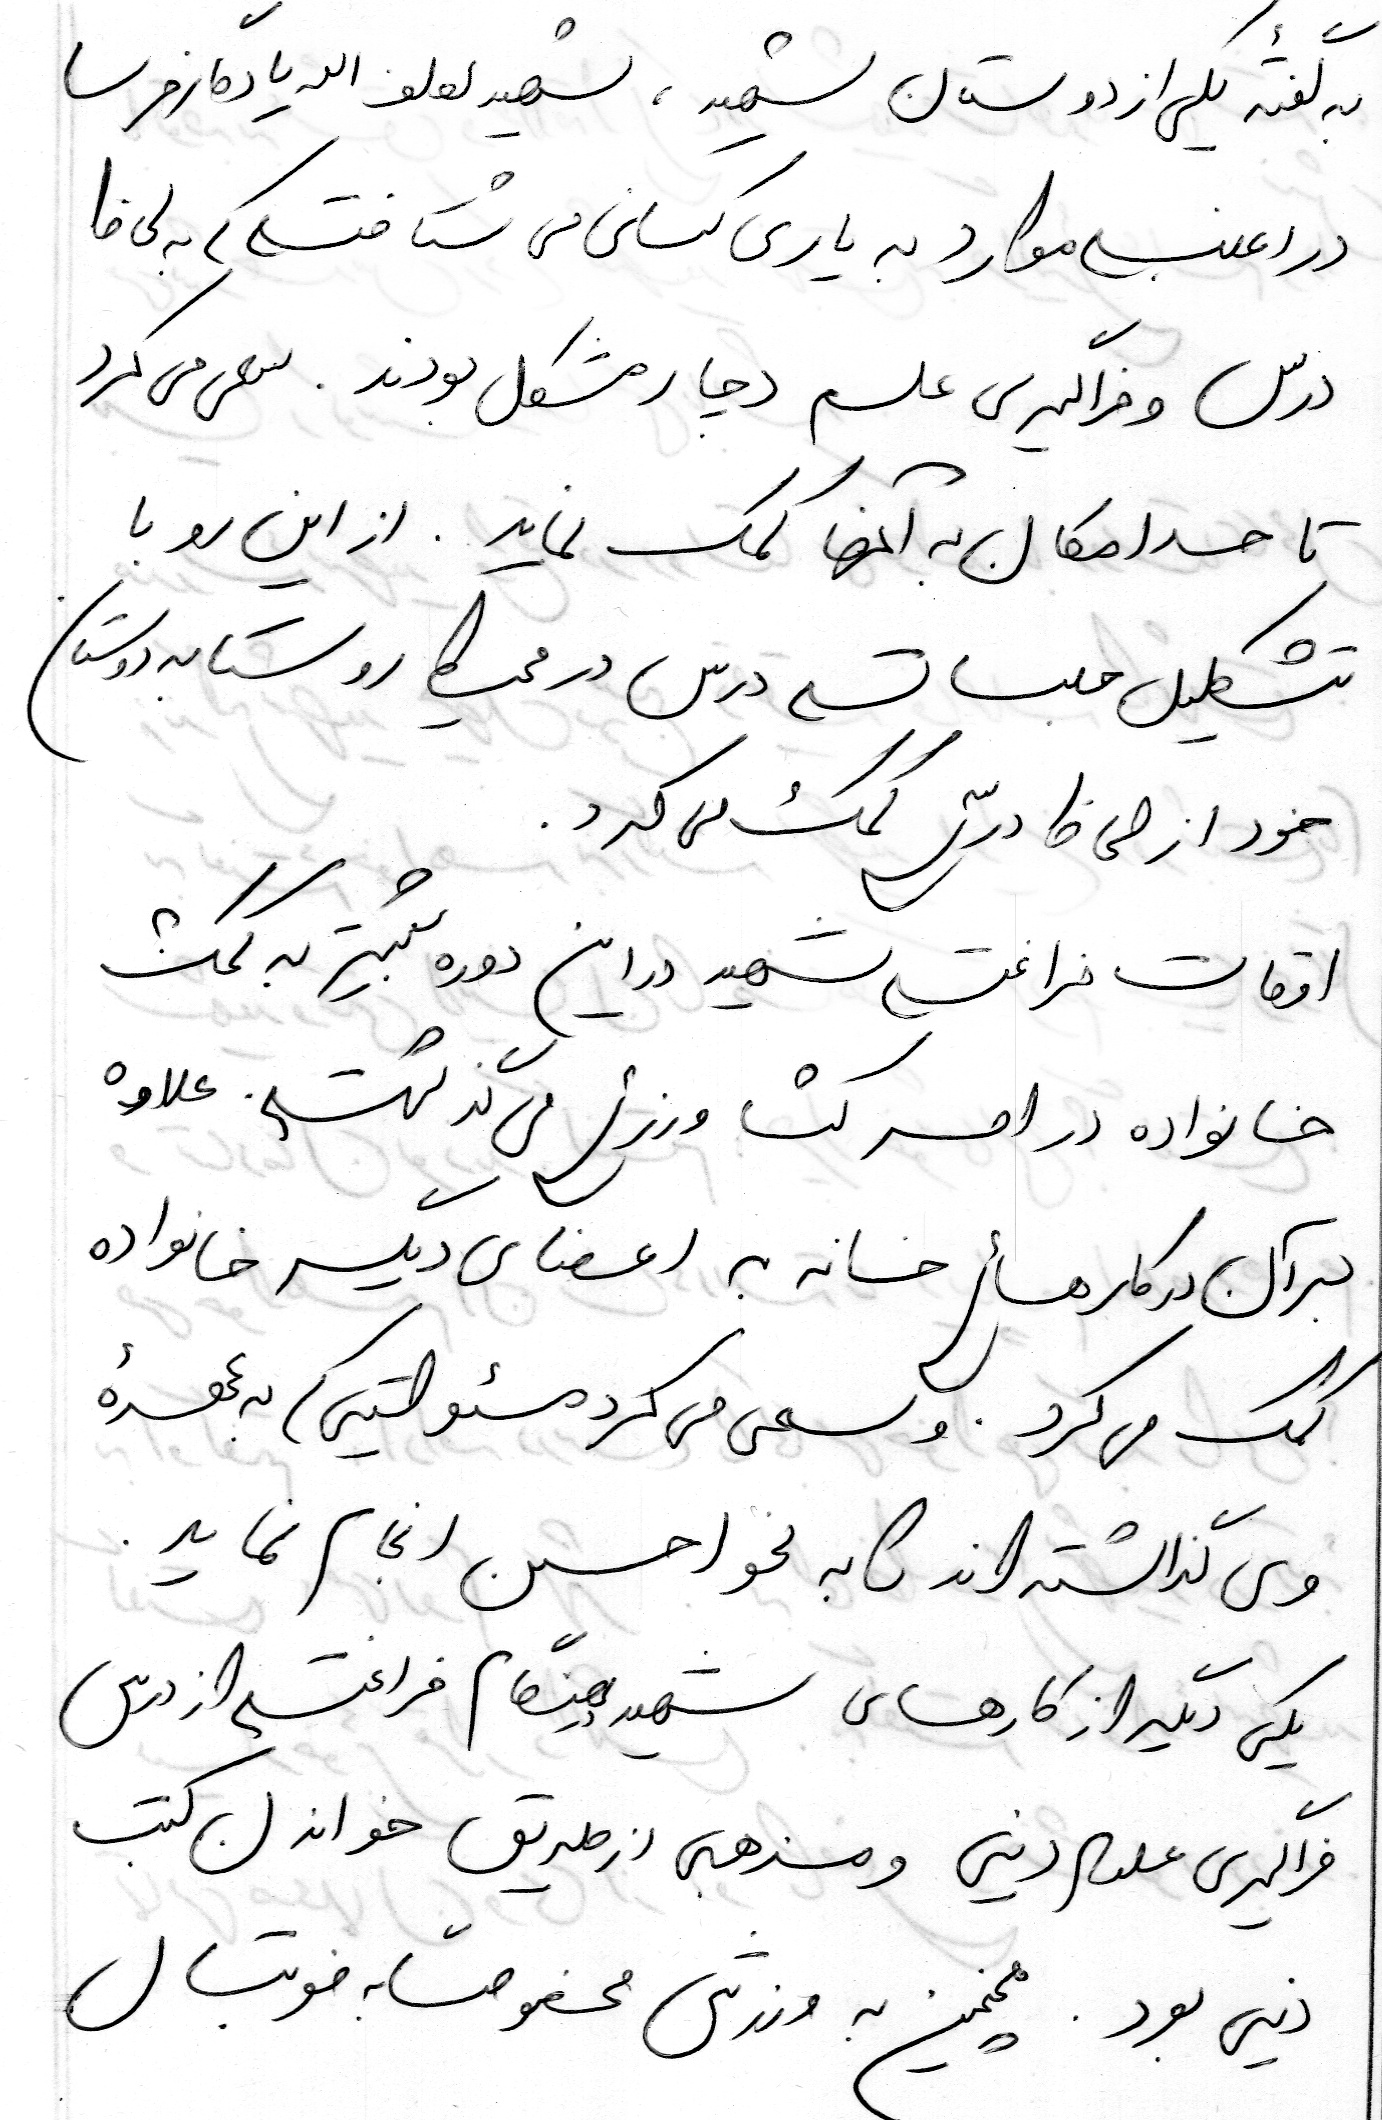 به گفتهٔ یکی از دوستان شهید، شهید لطف الله یادگار فرسا
در اغلب موارد به یاری کسانی می شتافت که به لحاظ
درس و فراگیری علم دچار مشکل بودند. سعی می کرد
تا حد امکان به آنها کمک نماید. از این رو با
تشکیل جلسات درس در محیط روستا به دوستان
خود از لحاظ درسی کمک می کرد.
اوقات فراغت شهید در این دوره بیشتر به کمک
خانواده در امر کشاورزی می گذشت. علاوه
بر آن در کارهای خانه به اعضای دیگر خانواده
کمک می کرد. و سعی می کرد مسئولیتی که به عهدهٔ
وی گذاشته اند را به نحو احسن انجام نماید.
یکی دیگر از کارهای شهید هنگام فراغت از درس
فراگیری علوم دینی و مذهبی از طریق خواندن کتب
دینی بود. همچنین به ورزش مخصوصاً به فوتبال